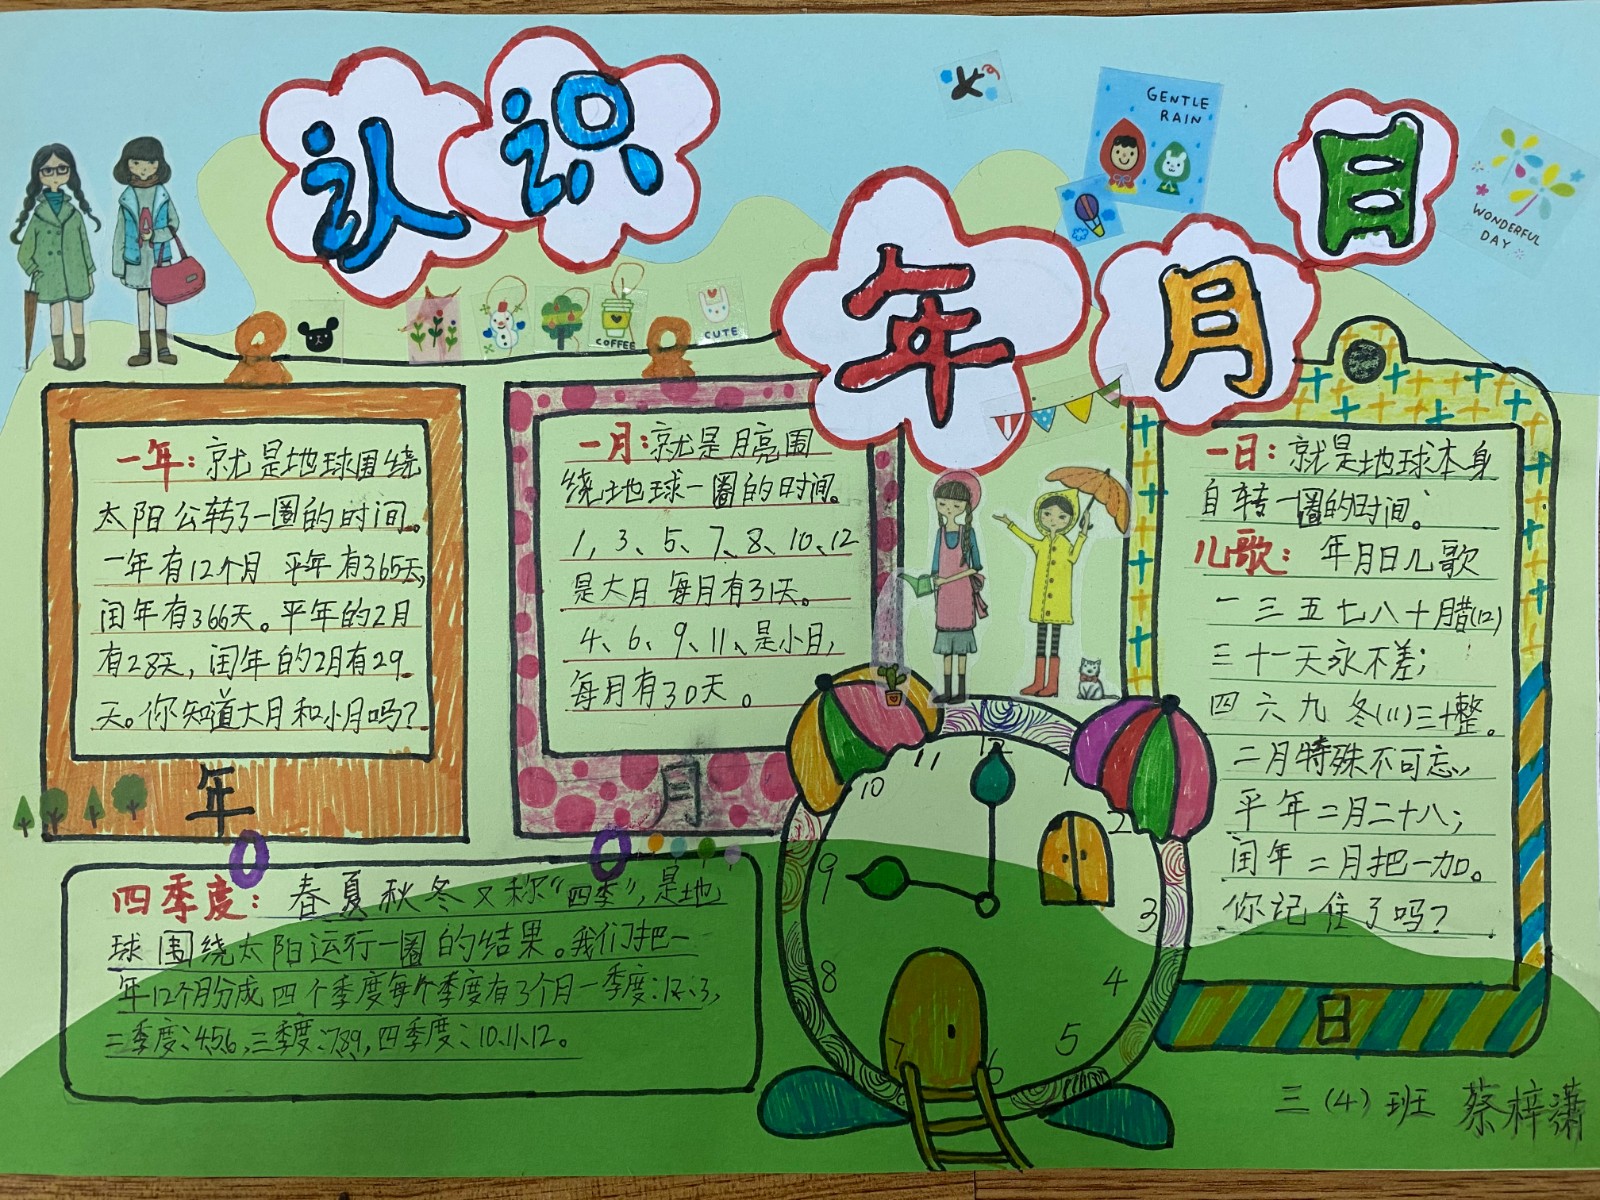 认识
年月日
GENTLE
RAIN
WONDERFUL
DAY
COFFEE
CUTE
一年：就是地球围绕
太阳公转了一圈的时间。
一年有12个月 平年有365天,
闰年有366天。平年的2月
有28天，闰年的2月有29
天。你知道大月和小月吗？
年
一月：就是月亮围
绕地球一圈的时间。
1，3、5、7、8、10、12
是大月 每月有31天。
4、6、9、11、是小月，
每月有30天。
月
一日：就是地球本身
自转一圈的时间。
儿歌： 年月日儿歌
一三五七八十月腊(12)
三十一天永不差；
四六九冬(11)三十整。
二月特殊不可忘，
平年二月二十八；
闰年二月把一加。
你记住了吗？
日
四季度：春夏秋冬又称“四季”，是地
球围绕太阳运行一圈的结果。我们把一
年12个月分成四个季度每个季度有3个月一季度：1、2、3，
二季度：4、5、6，三季度：7、8、9，四季度：10、11、12。
12
11
1
10
2
9
3
8
4
7
5
6
三（4）班 蔡梓潇